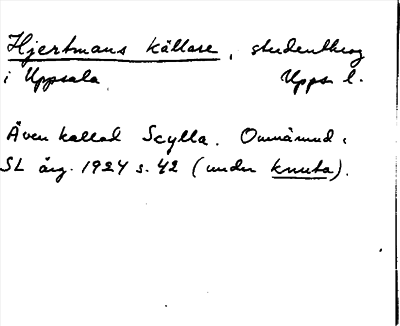 Hjertmans källare, studentkrog
i Uppsala. Upps. l.
Även kallad Scylla. Omnämnd i
SL årg. 1924 s. 42 (under knuta).